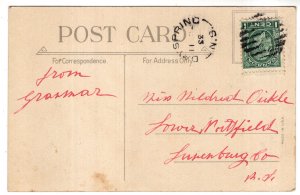 POST CARD
For Correspondence.
For Address Only.
SPRING
N.S.
from
Grammar
Miss Mildred Oickle
Lower Northfield
Lunenburg Co
N.S.